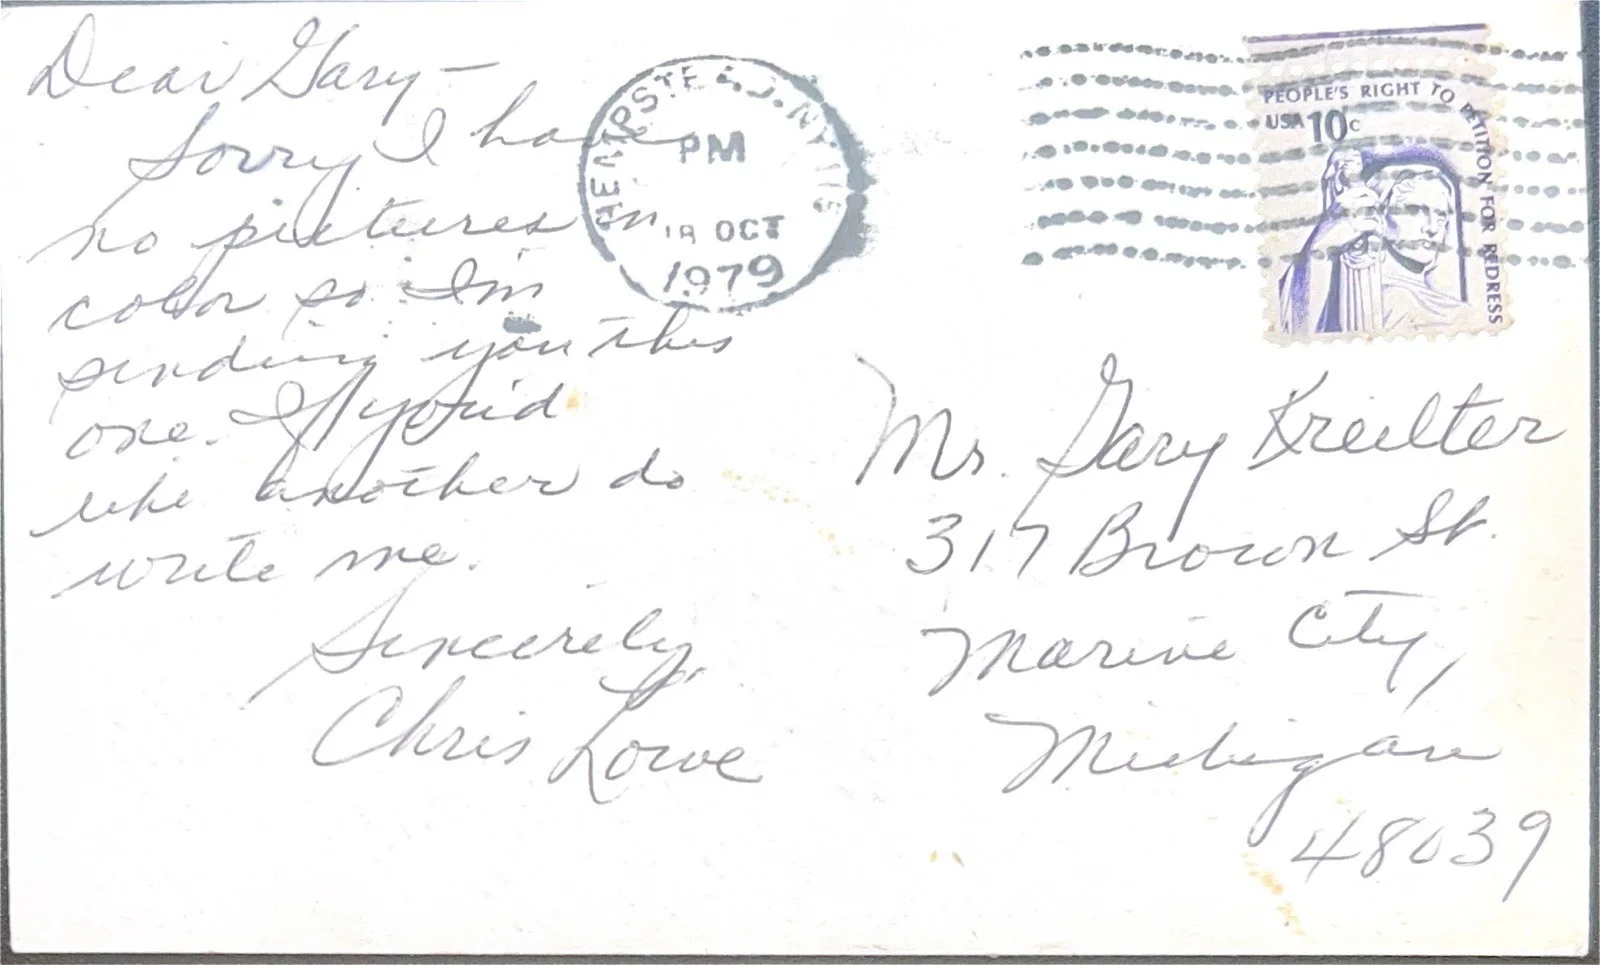 Dear Gary—
Sorry I have
no pictures in
color so I'm
sending you this
one. If you'd
like another do
write me.
Sincerely,
Chris Lowe
HEMPSTEAD, NY 115
PM
18 OCT
1979
PEOPLE'S RIGHT TO PETITION FOR REDRESS
USA 10c
Mr. Gary Kreilter
317 Brown St.
Marine City,
Michigan
48039